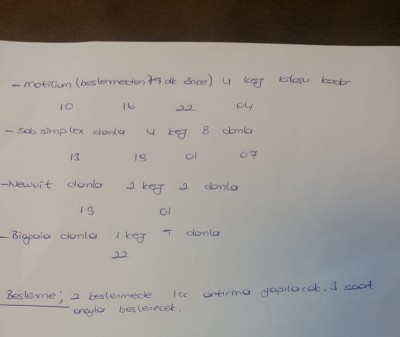 - Motilium (beslenmeden önce) 4 kez kilosu kadar
10 16 22 04
- Sab simplex damla 4 kez 8 damla
13 19 01 07
- Newvit damla 2 kez 2 damla
13 01
- Biogaia damla 1 kez damla
22
Besleme; 2 beslenmede 1cc artırma yapılacak. 3 saat
arayla beslenecek.